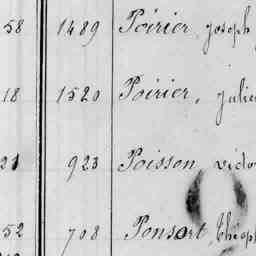 58 1489 Poirier, Joseph
18 1520 Poirier, Julie
21 923 Poisson, Victo
52 708 Ponsort, Théop